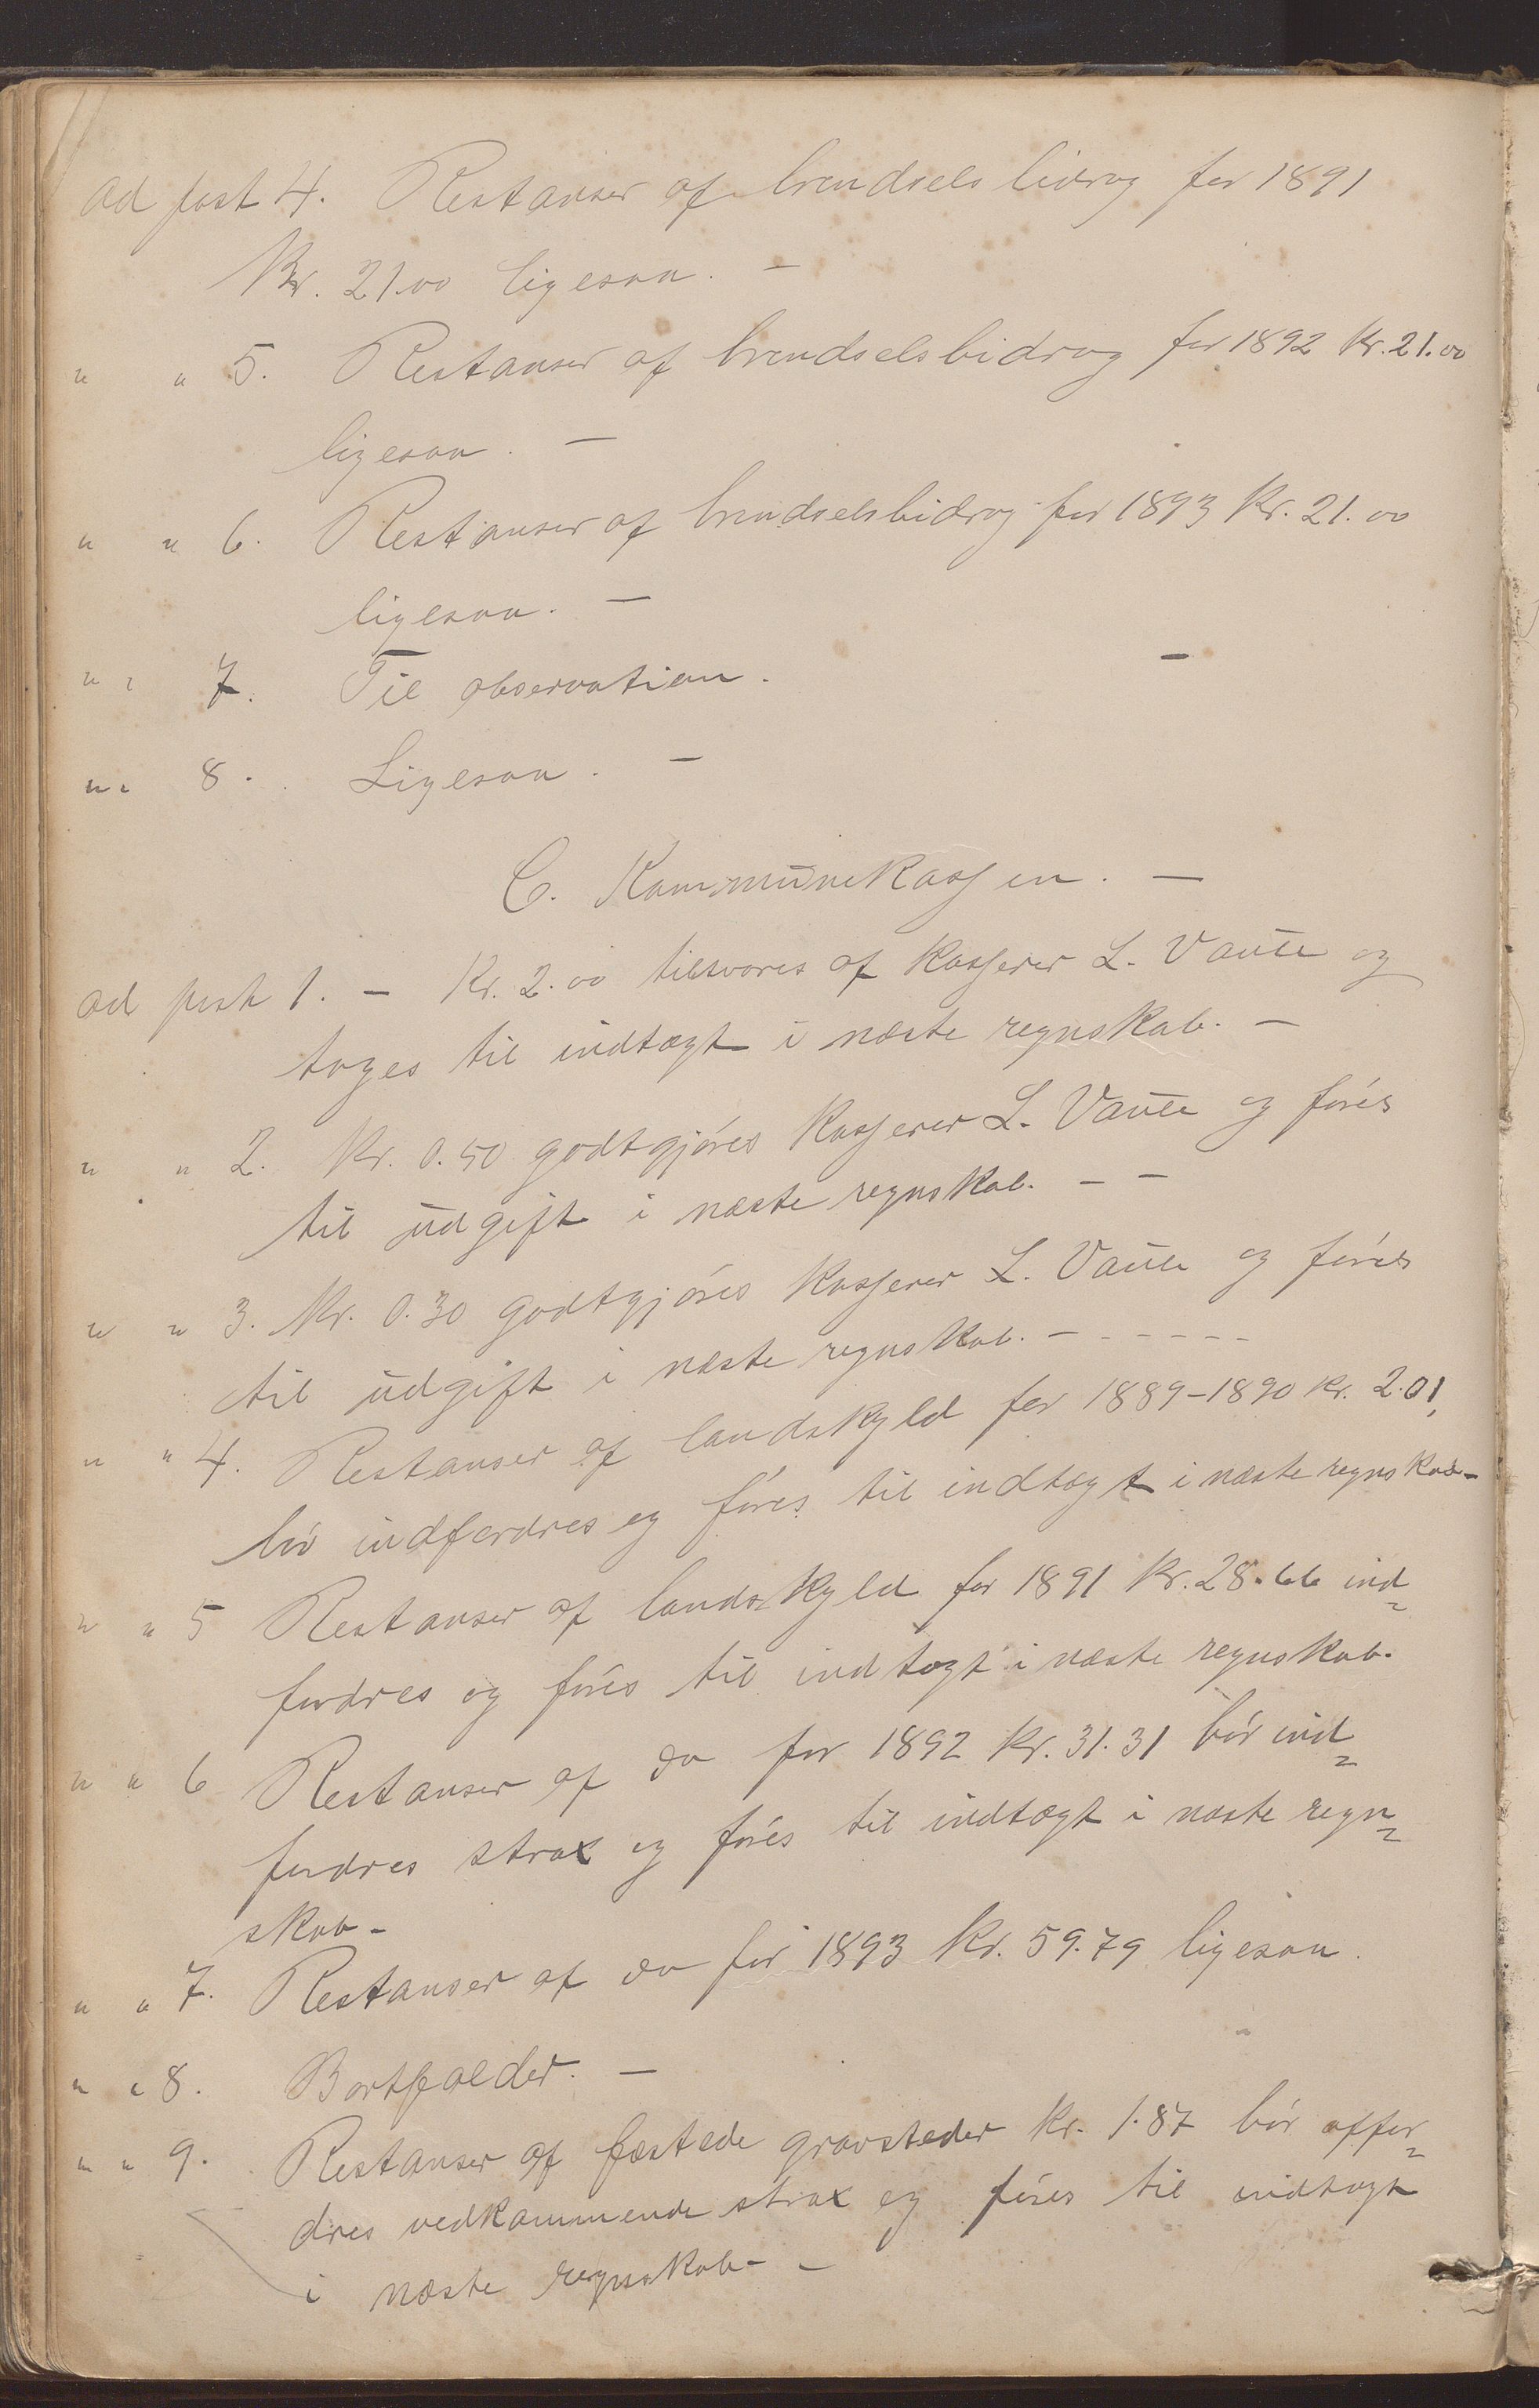 Ad post 4. Restanser af brendsels bidrag for 1891
Kr. 21.00 ligesaa. —
" " 5. Restanser af brendselsbidrag for 1892 Kr. 21.00
ligesaa. —
" " 6. Restanser af brendselsbidrag for 1893 Kr. 21.00
ligesaa. —
" " 7. Til observation. —
" " 8. Ligesaa. —
C. Kommunekassen. —
ad post 1. — Kr. 2.00 tilsvares af Kasserer L. Vaule og
tages til indtægt i næste regnskab. —
" " 2. Kr. 0.50 godtgjøres Kasserer L. Vaule og føres
til udgift i næste regnskab. — —
" " 3. Kr. 0.30 godtgjøres Kasserer L. Vaule og føres
til udgift i næste regnskab. — - - - - -
" " 4. Restanser af landskyld for 1889-1890 Kr. 2.01,
bør indfordres og føres til indtægt i næste regnskab—
" " 5 Restanser af landskyld for 1891 Kr. 28.66 ind=
fordres og føres til indtægt i næste regnskab.
" " 6 Restanser af do for 1892 Kr. 31.31 bør ind=
fordres strax og føres til indtægt i næste regn=
skab —
" " 7. Restanser af do for 1893 Kr. 59.79 ligesaa.
" " 8. Bortfalder. —
" " 9. Restanser af fæstede gravsteder Kr. 1.87 bør affor=
dres vedkommende strax og føres til indtægt
i næste regnskab — —